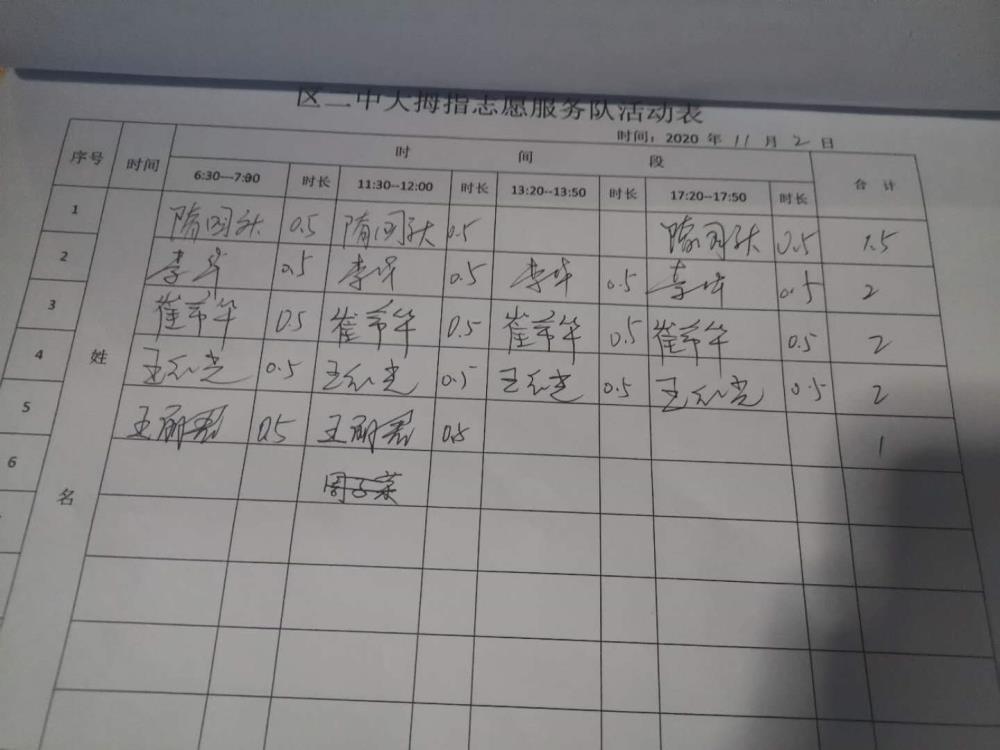 区二中大拇指志愿服务队活动表
时间：2020 年 11 月 2 日
序号 时间 时 间 段 合 计
6:30---7:00 时长 11:30--12:00 时长 13:20--13:50 时长 17:20--17:50 时长
1 0.5 0.5 0.5 1.5
2 李华 0.5 李华 0.5 李华 0.5 李华 0.5 2
3 崔希华 0.5 崔希华 0.5 崔希华 0.5 崔希华 0.5 2
4 王红光 0.5 王红光 0.5 王红光 0.5 王红光 0.5 2
5 王丽君 0.5 王丽君 0.5 1
6 周子荣
姓
名